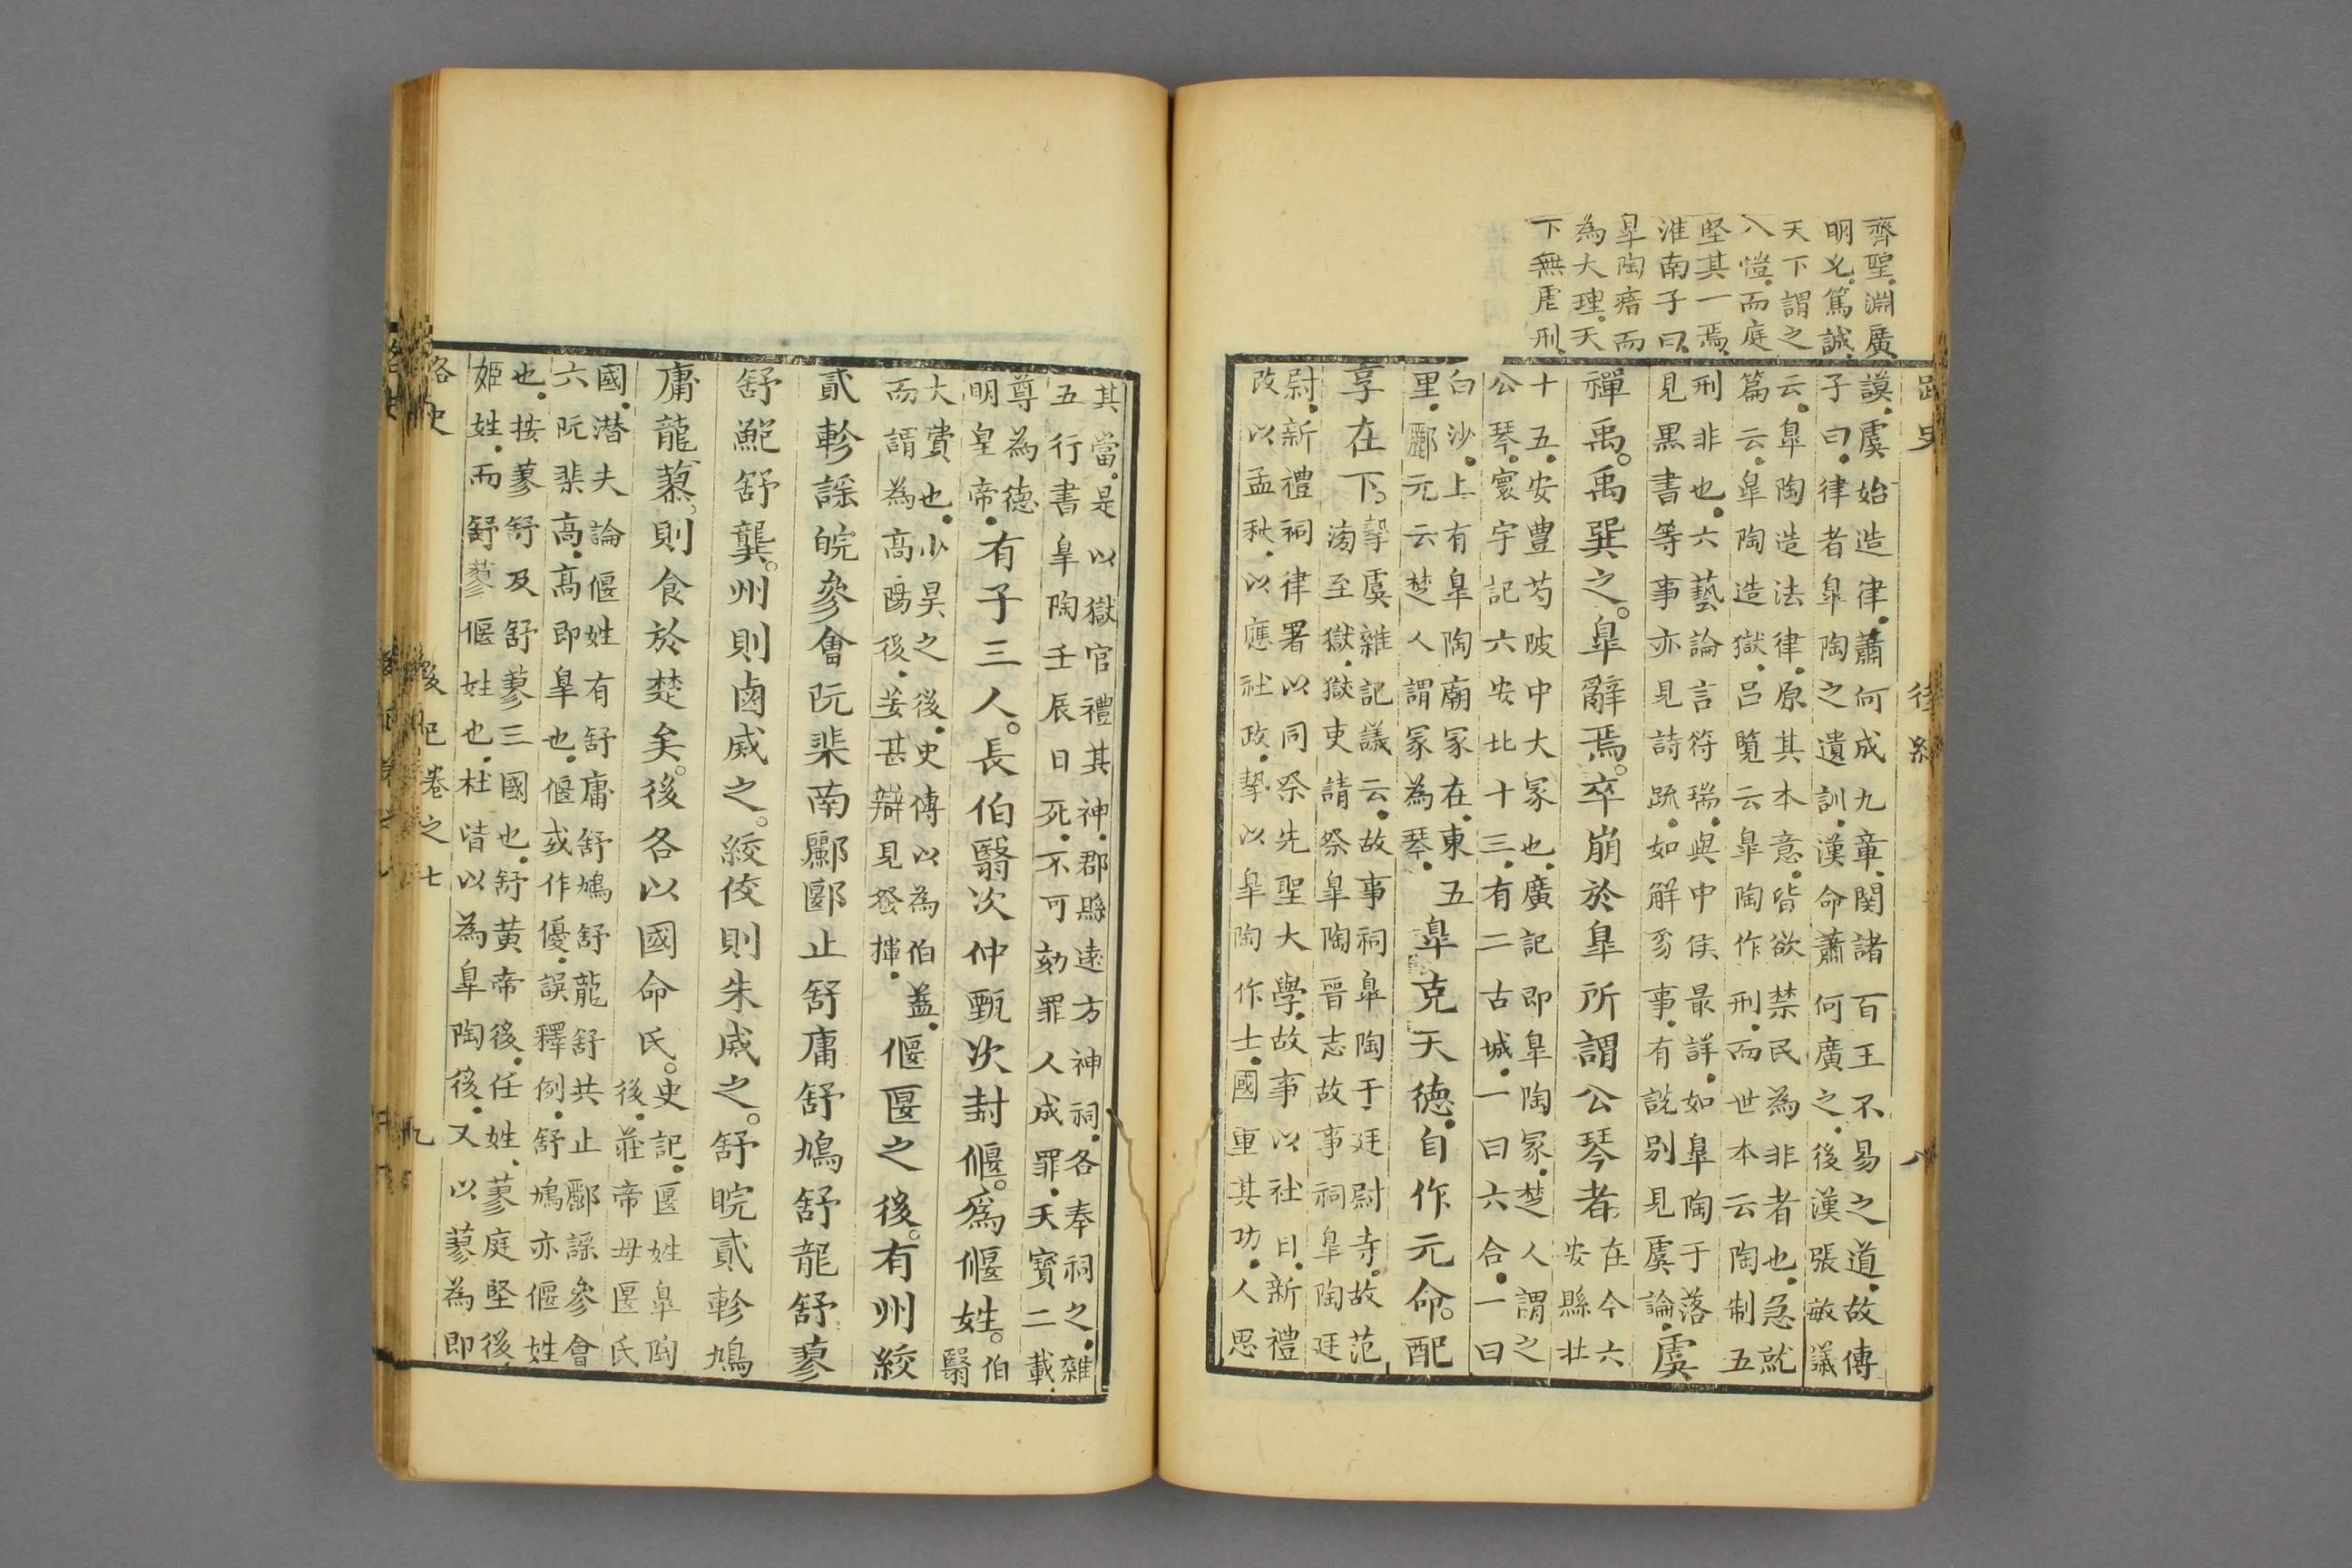 齊聖淵廣
明允篤誠
天下謂之
八愷而庭
堅其一焉
淮南子曰
皐陶瘖而
為大理天
下無虐刑
路史 後紀 八
謨虞始造律蕭何成九章関諸百王不易之道故傳
子曰律者皐陶之遺訓漢命蕭何廣之後漢張敏議
云皐陶造法律原其本意皆欲禁民為非者也急就
篇云皐陶造獄呂覽云皐陶作刑而世本云陶制五
刑非也六藝論言符瑞與中侯最詳如皐陶于落
見黒書等事亦見詩䟽如解豸事有說別見虞論
虞
禪禹。禹巽之。皐辭焉。卒崩於皐所謂公琴者
在今六
安縣北
十五安豊芍陂中大冢也廣記即皐陶冢楚人謂之
公琴寰宇記六安北十三有二古城一曰六合一曰
白沙上有皐陶廟冢在東五
里酈元云楚人謂冢為琴
皐克天德自作元命。配
享在下。
摯虞雜記議云故事祠皐陶于廷尉寺故范
滂至獄獄吏請祭皐陶晉志故事祠皐陶廷
尉新禮祠律署以同祭先聖大學故事以社日新禮
改以孟秋以應社政摯以皐陶作士國重其功人思
其當是以獄官禮其神郡縣遠方神祠各奉祠之雜
五行書皐陶壬辰日死不可劾罪人成罪天寶二載
尊為德
明皇帝
有子三人。長伯翳次仲甄次封偃。為偃姓。
伯
翳
大費也少昊之後史傳以為伯益
而謂為高陽後妄甚辯見發揮
偃匽之後。有州絞
貳軫謡皖參會阮棐南酈郾止舒庸舒鳩舒龍舒蓼
舒鮑舒龔。州則鹵烕之。絞佼則朱烕之。舒睆貳軫鳩
庸龍蓼。則食於楚矣。後各以國命氏。
史記匽姓皐陶
後莊帝母匽氏
國潜夫論偃姓有舒庸舒鳩舒龍舒共止酈謡參會
六阮棐高高即皐也偃或作優誤釋例舒鳩亦偃姓
也按蓼舒及舒蓼三國也舒黄帝後任姓蓼庭堅後
姬姓而舒蓼偃姓也杜皆以為皐陶後又以蓼為即
路史 後紀卷之七 九